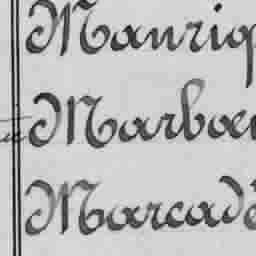 Manriq
Marbœ
Marcadé